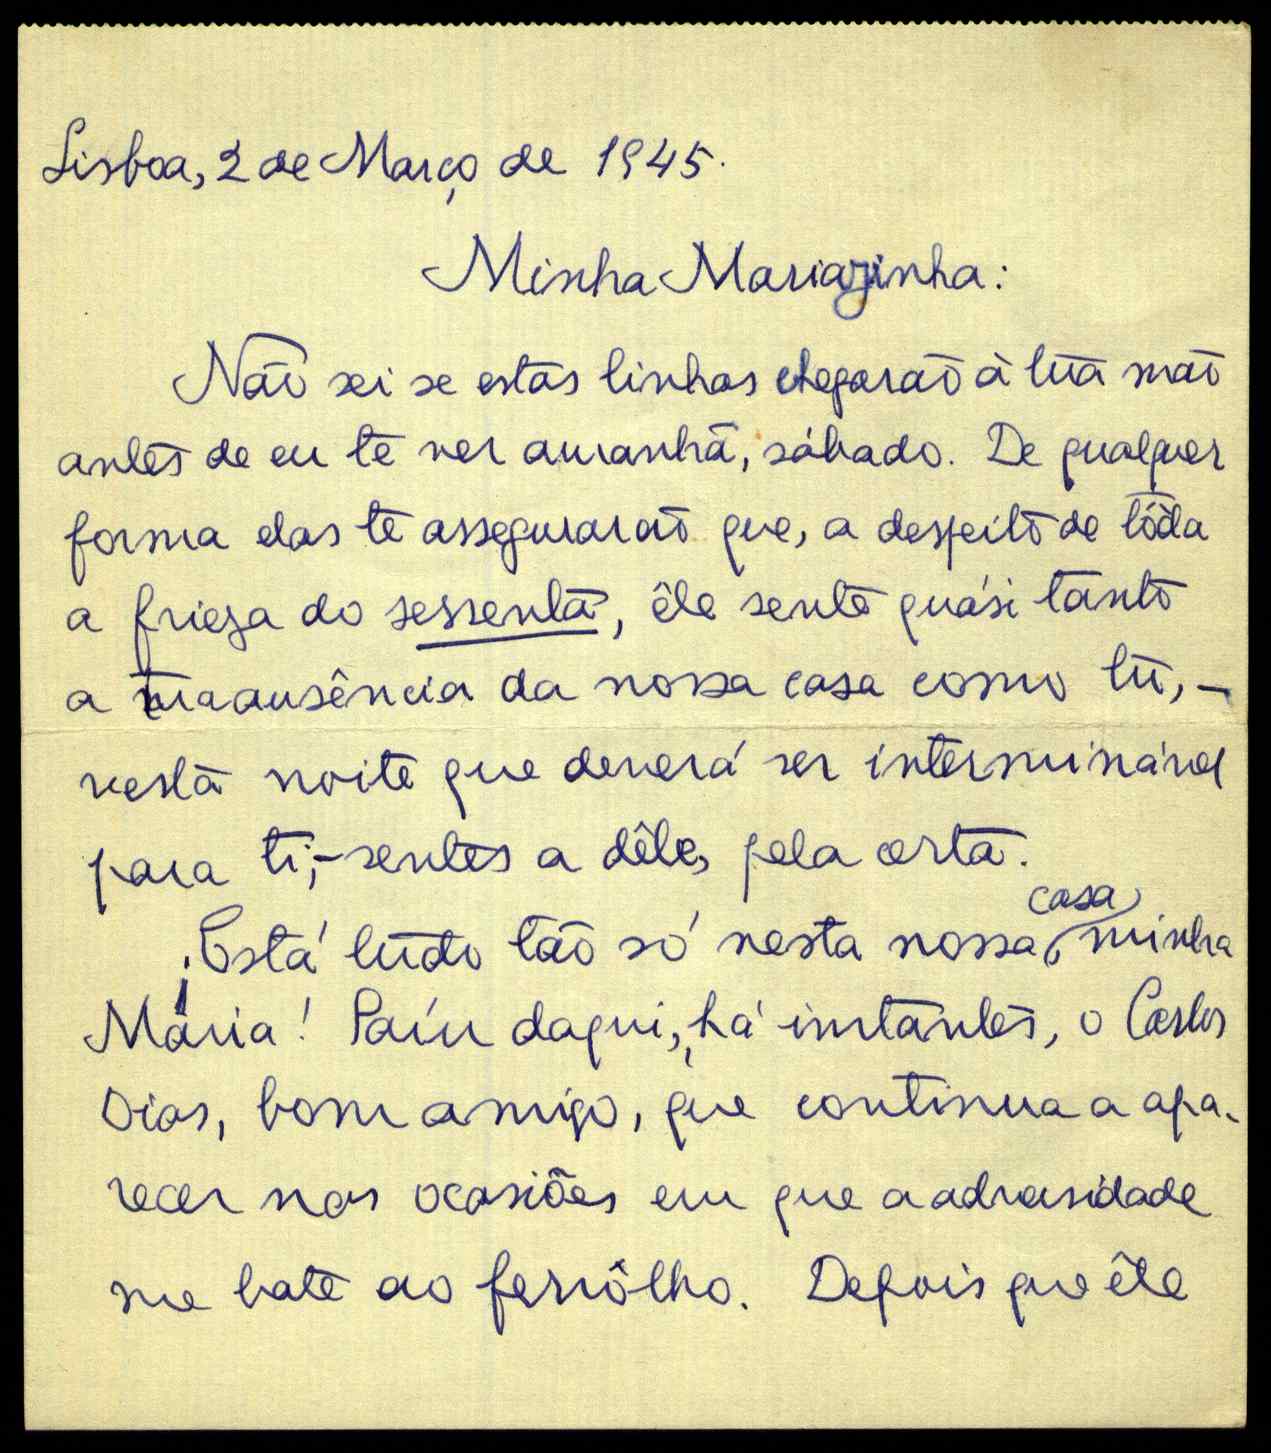 Lisboa, 2 de Março de 1945.
Minha Mariazinha:
Não sei se estas linhas chegarão à tua mão
antes de eu te ver amanhã, sábado. De qualquer
forma elas te assegurarão que, a despeito de tôda
a frieza do sessentã, êle sente quási tanto
a tua ausência da nossa casa como tu, -
nesta noite que deverá ser interminável
para ti, - sentes a dêle, pela certa.
¡Está tudo tão só nesta nossa casa, minha
Mária! Saíu daqui, há instantes, o Carlos
Dias, bom amigo, que continua a apa-
recer nas ocasiões em que a adversidade
me bate ao ferrôlho. Depois que êle